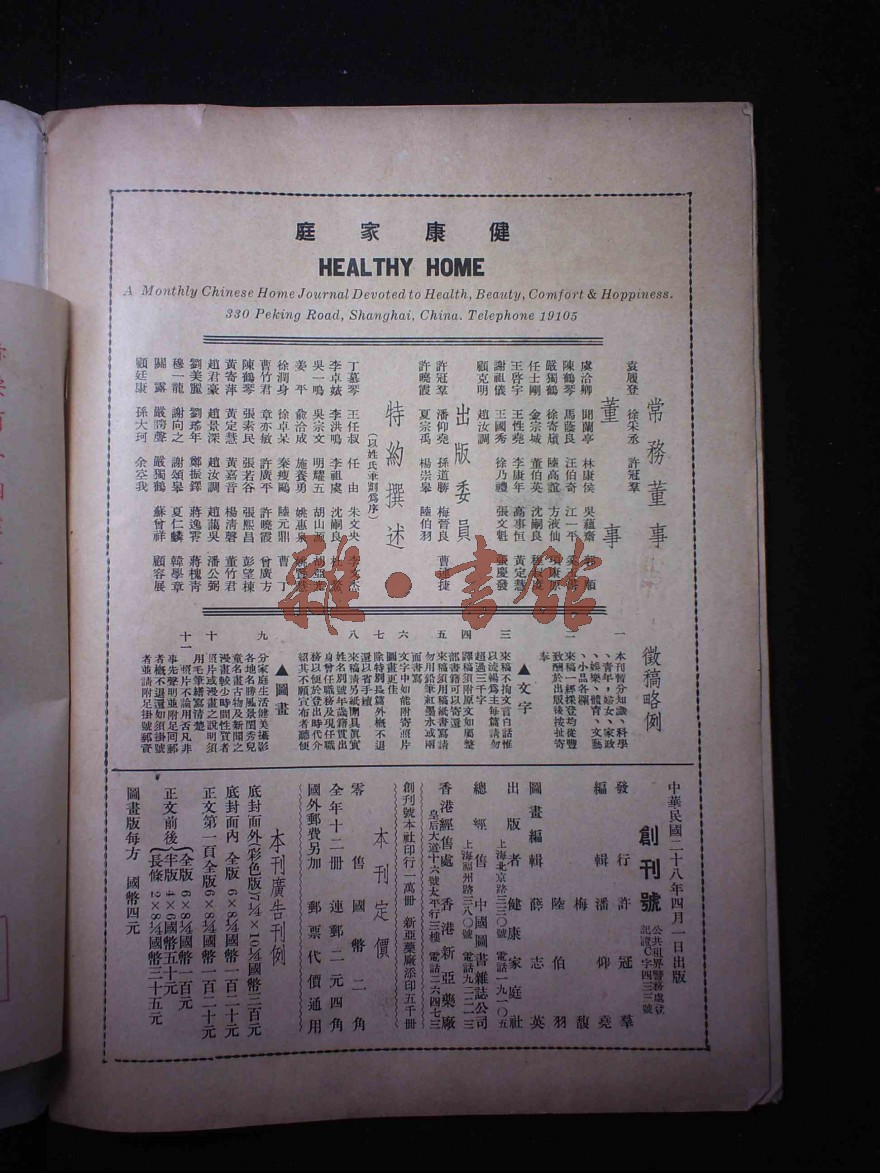 庭家康健
HEALTHY HOME
A Monthly Chinese Home Journal Devoted to Health, Beauty, Comfort & Hoppiness.
330 Peking Road, Shanghai, China. Telephone 19105
常務董事
袁履登 徐朵丞 許冠羣
董事
虞洽卿 聞蘭亭 林康侯 吳蘊齋
陳鶴琴 馬蔭良 汪伯奇 江一平
嚴獨鶴 徐寄廎 陸高誼 方液仙 項康原
任士剛 金宗城 董伯英 沈嗣良
王啓宇 王性堯 李康年 高事恒 黃定慧
謝祖儀 王國秀 徐乃禮 張文魁 張慶發
顧克明 趙汝調
出版委員
許冠羣 潘仰堯 孫道勝 梅晉良
許曉霞 夏宗禹 楊崇皋 陸伯羽
特約撰述
(以姓氏筆劃爲序)
丁慕琴 王任叔 任由 朱文央 李文杰
李卓娀 李洪鳴 李祖虞 沈嗣良
吳一鳴 吳宗文 明耀五 胡山源
姜平 俞洽成 施養勇 姚惠泉
徐潤身 徐卓呆 秦瘦鷗 陸元鼎 曹丁
曹竹君 章亦敏 許廣平 許曉霞 曾廣方
陳鶴琴 張素民 張若谷 張熙昌 彭望棟
黃寄萍 黃定慧 黃嘉音 楊清磬 董竹君
趙君豪 趙景深 趙汝調 趙藹吳 潘公弼
劉美麗 劉瑤年 鄭振鐸 蔣逸雰 蔣槐青
穆一龍 謝向之 謝頌皋 夏仁麟 韓學章
關露 嚴諤聲 嚴獨鶴 蘇曾祥 顧容展
顧廷康 孫大珂 余空我
徵稿略例
一 本刊暫分知識、科學
、青年、婦女、家政
、娛樂、體育、文藝
、小品各欄
二 來稿一經採登均從豐
致酬於出版後按址寄
奉
▲文字
三 來稿不拘文言白話惟
以流暢爲主每篇請勿
超過三千字
四 譯稿須附原文如屬整
部書籍可以寄還
五 來稿須用稿紙書寫請
勿用鉛筆紅墨水或兩
面書寫
六 文字中如能附寄照片
圖畫更佳
七 除特別長篇外概不退
還以省手續
八 來稿請另紙開具眞實
姓名別號年歲籍貫出
身曾任職務及現任職
務以便於登出時代介
紹其不願宣布者聽便
▲圖畫
九 分家庭生活健美攝影
各地名勝風景閨秀兒
童名畫古物及新聞之
漫畫較少時間性質者
十 照片或漫畫之說明須
用毛筆繕寫清楚
十一 照片不論用否凡非
事先聲明並附足回郵
者概不退還如須掛號
者並請附足掛號郵資
中華民國二十八年四月一日出版
創刊號
公共租界警務處登
記證C字四三三號
發行 許冠羣
編輯 潘仰堯
梅馥
陸伯羽
圖畫編輯 薛志英
出版者 健康家庭社
上海北京路三三〇號 電話一九一〇五
總經售 中國圖書雜誌公司
上海福州路三八〇號 電話九三二二三
香港經售處 香港新亞藥廠
皇后大道十六號太平行三樓 電話二六四七三
創刊號本社印行一萬冊 新亞藥廠添印五千冊
本刊定價
零售國幣二角
全年十二冊 連郵二元四角
國外郵費另加 郵票代價通用
本刊廣告刊例
底封面外(彩色版)7¾×10¼國幣三百元
底封面內 全版 6×8¼國幣一百二十元
正文第一頁全版6×8¼國幣一百二十元
正文前後 全版 6×8¼國幣一百元
半版 4×6國幣五十元
長條 2×8¼國幣三十五元
圖畫版每方 國幣四元
雜·書館